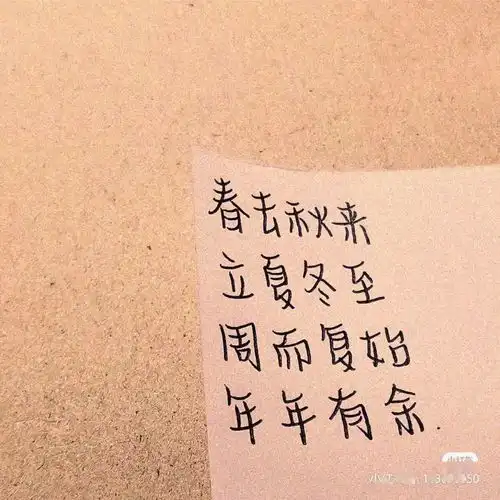 春去秋来
立夏冬至
周而复始
年年有余.
小红书